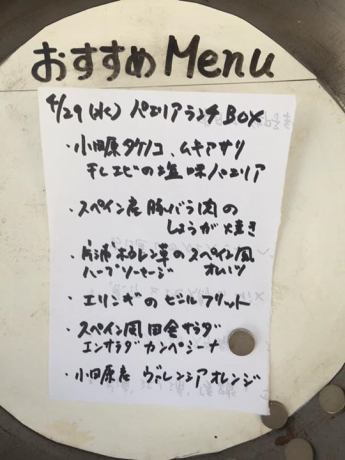 おすすめ Menu
4/29(水) パエリアランチBOX
・小田原タケノコ、ムキアサリ
干しエビの塩味パエリア
・スペイン産豚バラ肉の
しょうが焼き
・片浦ホウレン草のスペイン風
ハーブソーセージ オムレツ
・エリンギのピルフリット
・スペイン風田舎サラダ
エンサラダカンペシーナ
・小田原産 ヴァレンシアオレンジ